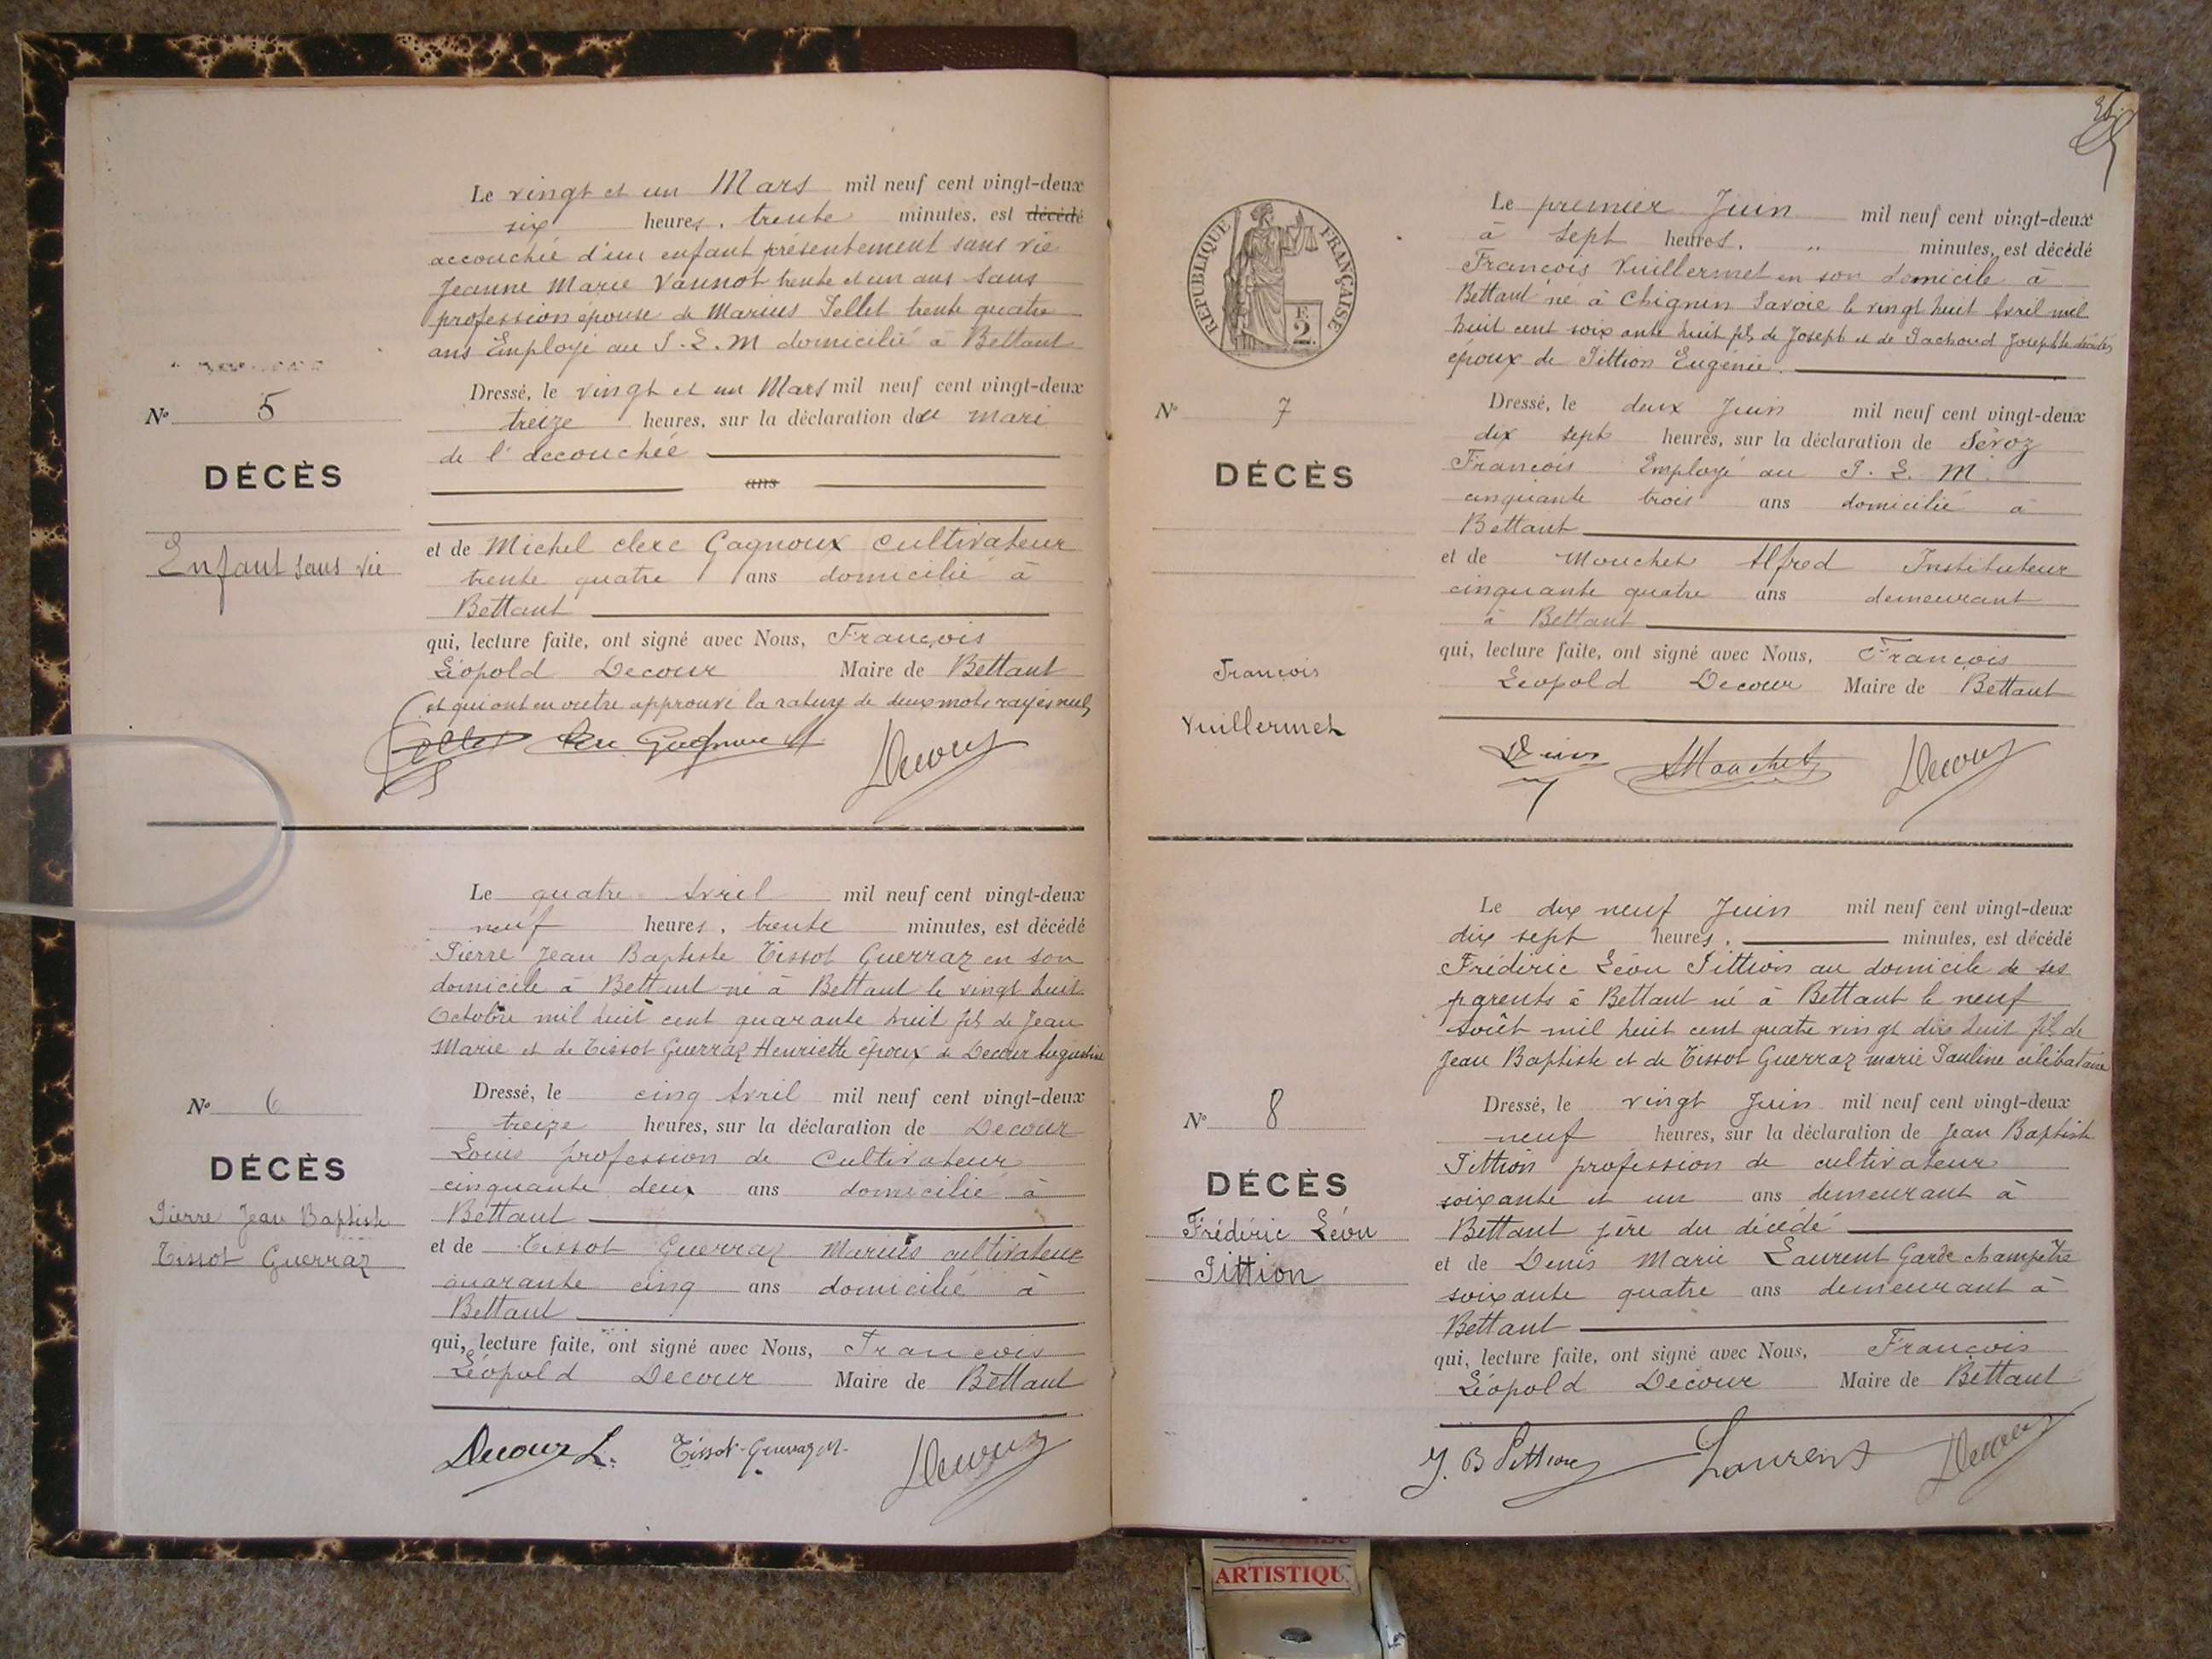 Le vingt et un Mars mil neuf cent vingt-deux
six heures, trente minutes, est décédé
accouchée d'un enfant présentement sans vie
Jeanne Marie Vannot trente et un ans sans
profession épouse de Marius Pellet trente quatre
ans Employé au P. L. M domicilié à Bettant
Dressé, le vingt et un Mars mil neuf cent vingt-deux
treize heures, sur la déclaration du mari
de l'accouchée
ans
et de Michel clerc Gagnoux cultivateur
trente quatre ans domicilié à
Bettant
qui, lecture faite, ont signé avec Nous, François
Léopold Decour Maire de Bettant
et qui ont en outre approuvé la rature de deux mots rayés nuls
Decour
No 5
DÉCÈS
Enfant sans vie
Le quatre Avril mil neuf cent vingt-deux
neuf heures, trente minutes, est décédé
Pierre Jean Baptiste Tissot Guerraz en son
domicile à Bettant né à Bettant le vingt huit
Octobre mil huit cent quarante huit fils de Jean
Marie et de Tissot Guerraz Henriette époux de Decour Augustine
Dressé, le cinq Avril mil neuf cent vingt-deux
treize heures, sur la déclaration de Decour
Louis profession de Cultivateur
cinquante deux ans domicilié à
Bettant
et de Tissot Guerraz Marius cultivateur
quarante cinq ans domicilié à
Bettant
qui, lecture faite, ont signé avec Nous, François
Léopold Decour Maire de Bettant
Decour L. Tissot-Guerraz M. Decour
No 6
DÉCÈS
Pierre Jean Baptiste
Tissot Guerraz
RÉPUBLIQUE FRANÇAISE
F.
2
Le premier Juin mil neuf cent vingt-deux
à sept heures, " minutes, est décédé
François Vuillermet en son domicile à
Bettant né à Chignin Savoie le vingt huit Avril mil
huit cent soixante huit fils de Joseph et de Pachoud Josephte décédés
époux de Pittion Eugénie
Dressé, le deux Juin mil neuf cent vingt-deux
dix sept heures, sur la déclaration de Séroz
François Employé au P. L. M.
cinquante trois ans domicilié à
Bettant
et de Mouchet Alfred Instituteur
cinquante quatre ans demeurant
à Bettant
qui, lecture faite, ont signé avec Nous, François
Léopold Decour Maire de Bettant
AMouchet Decour
No 7
DÉCÈS
François
Vuillermet
Le dix neuf Juin mil neuf cent vingt-deux
dix sept heures, minutes, est décédé
Frédéric Léon Pittion au domicile de ses
parents à Bettant né à Bettant le neuf
Août mil huit cent quatre vingt dix huit fils de
Jean Baptiste et de Tissot Guerraz marie Pauline célibataire
Dressé, le vingt Juin mil neuf cent vingt-deux
neuf heures, sur la déclaration de Jean Baptiste
Pittion profession de cultivateur
soixante et un ans demeurant à
Bettant père du décédé
et de Denis Marie Laurent Garde champêtre
soixante quatre ans demeurant à
Bettant
qui, lecture faite, ont signé avec Nous, François
Léopold Decour Maire de Bettant
J. B Pittion Laurent Decour
No 8
DÉCÈS
Frédéric Léon
Pittion
ARTISTIQU